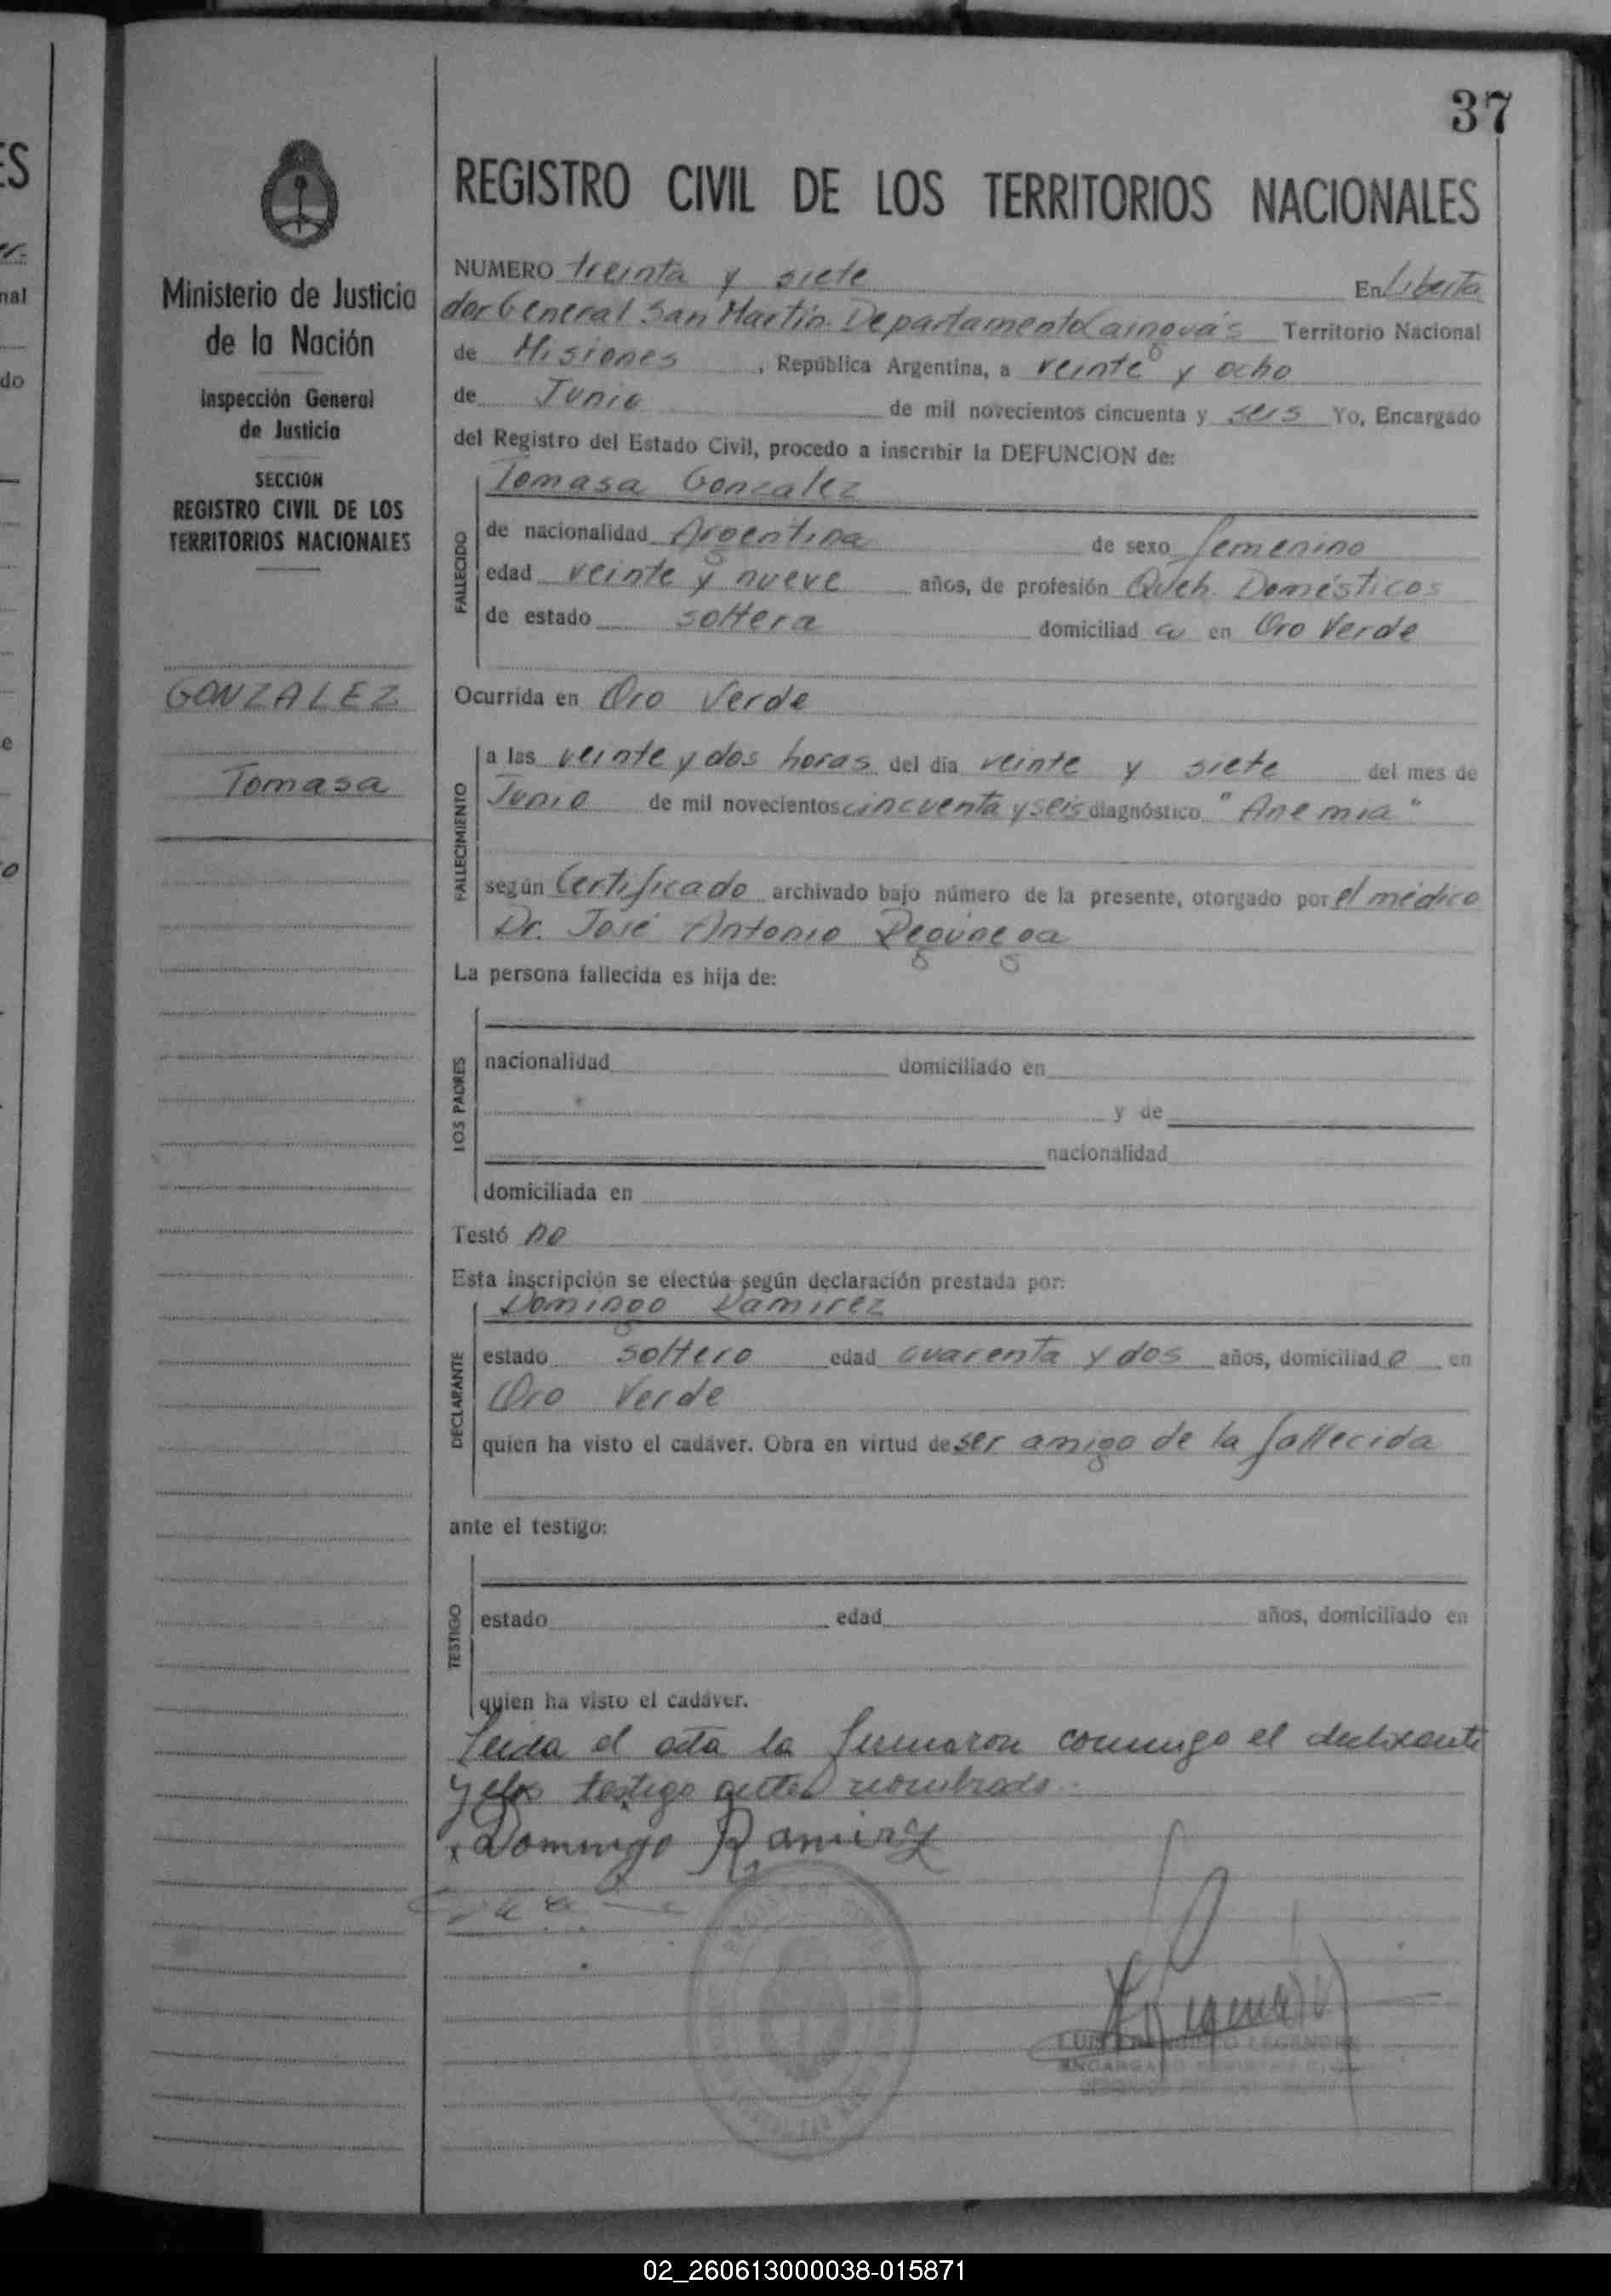 37
REGISTRO CIVIL DE LOS TERRITORIOS NACIONALES
Ministerio de Justicia
de la Nación
Inspección General
de Justicia
SECCION
REGISTRO CIVIL DE LOS
TERRITORIOS NACIONALES
GONZALEZ
Tomasa
NUMERO treinta y siete En Liberta
dor General San Martín Departamento Cainguás Territorio Nacional
de Misiones , República Argentina, a veinte y ocho
de Junio de mil novecientos cincuenta y seis Yo, Encargado
del Registro del Estado Civil, procedo a inscribir la DEFUNCION de:
Tomasa Gonzalez
FALLECIDO
de nacionalidad Argentina de sexo femenino
edad veinte y nueve años, de profesión Queh. Domésticos
de estado soltera domiciliad a en Oro Verde
Ocurrida en Oro Verde
FALLECIMIENTO
a las veinte y dos horas del día veinte y siete del mes de
Junio de mil novecientos cincuenta y seis diagnóstico "Anemia"
según Certificado archivado bajo número de la presente, otorgado por el médico
Dr. José Antonio
La persona fallecida es hija de:
LOS PADRES
nacionalidad domiciliado en
y de
nacionalidad
domiciliada en
Testó no
Esta inscripción se efectúa según declaración prestada por:
Domingo Ramirez
DECLARANTE
estado soltero edad cuarenta y dos años, domiciliad o en
Oro Verde
quien ha visto el cadáver. Obra en virtud de ser amigo de la fallecida
ante el testigo:
TESTIGO
estado edad años, domiciliado en
quien ha visto el cadáver.
Leida el acta la firmaron conmigo el declarante
y testigo antes nombrado
Domingo Ramirez
LUIS FRANCISCO LEGENDRE
ENCARGADO REGISTRO CIVIL
02_260613000038-015871